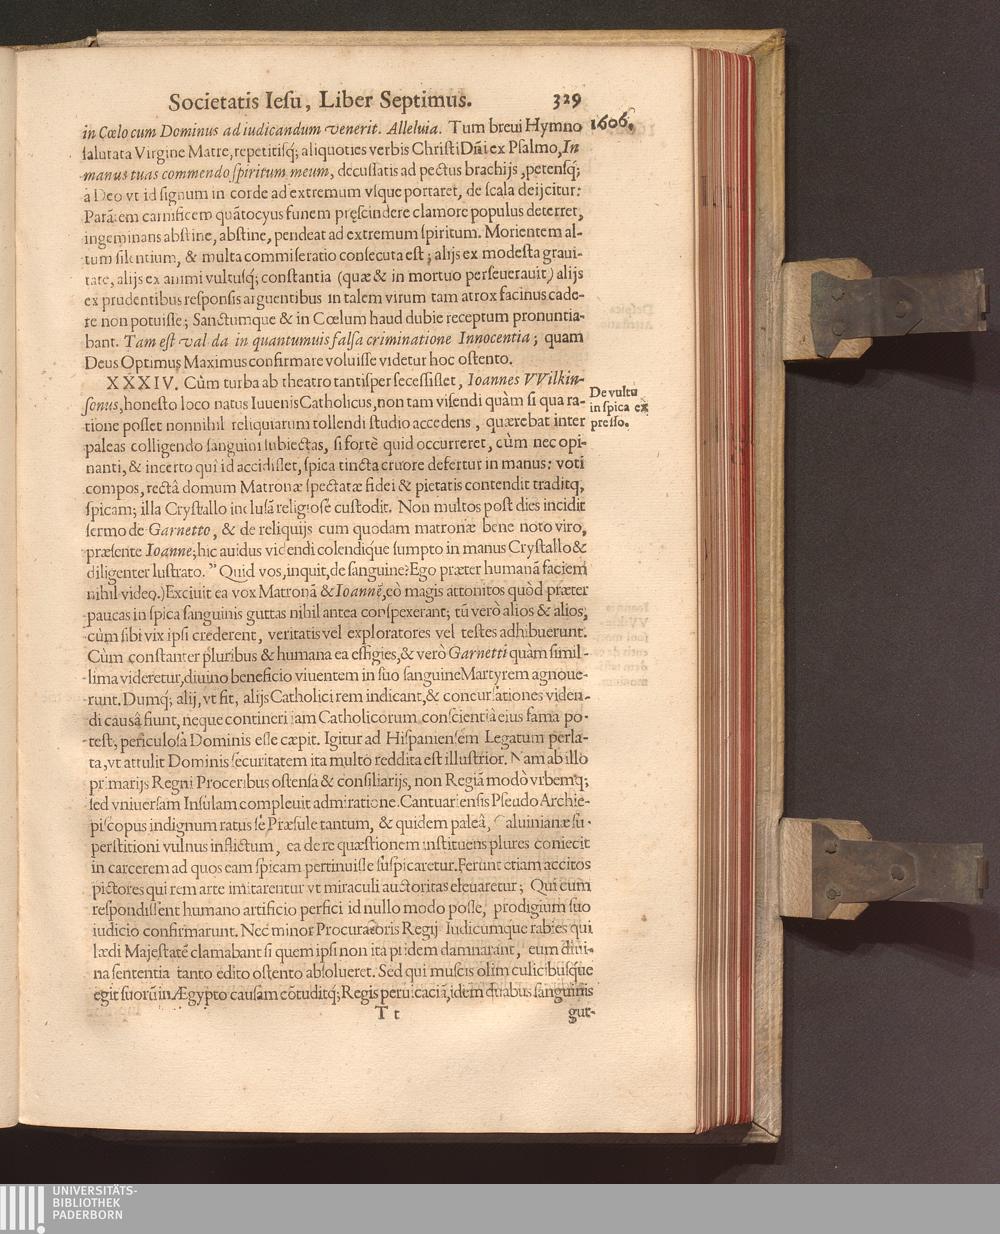 Societatis Iesu, Liber Septimus. 329
in Cœlo cum Dominus ad iudicandum venerit. Alleluia. Tum breui Hymno
1606.
salutata Virgine Matre, repetitisq́; aliquoties verbis Christi Dñi ex Psalmo, In
manus tuas commendo spiritum meum, decussatis ad pectus brachijs, petensq́;
à Deo vt id signum in corde ad extremum vsque portaret, de scala deijcitur:
Parātem carnificem quātocyus funem pręscindere clamore populus deterret,
ingeminans abstine, abstine, pendeat ad extremum spiritum. Morientem al-
tum silentium, & multa commiseratio consecuta est; alijs ex modesta graui-
tate, alijs ex animi vultusq́; constantia (quæ & in mortuo perseuerauit) alijs
ex prudentibus responsis arguentibus in talem virum tam atrox facinus cade-
re non potuisse; Sanctumque & in Cœlum haud dubie receptum pronuntia-
bant. Tam est valida in quantumuis falsa criminatione Innocentia; quam
Deus Optimus Maximus confirmare voluisse videtur hoc ostento.
XXXIV. Cùm turba ab theatro tantisper secessisset, Ioannes VVilkin-
sonus, honesto loco natus Iuuenis Catholicus, non tam visendi quàm si qua ra-
De vultu
in spica ex
presso.
tione posset nonnihil reliquiarum tollendi studio accedens, quærebat inter
paleas colligendo sanguini subiectas, si fortè quid occurreret, cùm nec opi-
nanti, & incerto qui id accidisset, spica tincta cruore defertur in manus: voti
compos, rectâ domum Matronæ spectatæ fidei & pietatis contendit traditq́,
spicam; illa Crystallo inclusā religiosè custodit. Non multos post dies incidit
sermo de Garnetto, & de reliquijs cum quodam matronæ bene noto viro,
præsente Ioanne; hic auidus videndi colendique sumpto in manus Crystallo &
diligenter lustrato. " Quid vos, inquit, de sanguine? Ego præter humanā faciem
nihil video.) Exciuit ea vox Matronā & Ioannē, eò magis attonitos quòd præter
paucas in spica sanguinis guttas nihil antea conspexerant; tū verò alios & alios,
cùm sibi vix ipsi crederent, veritatis vel exploratores vel testes adhibuerunt.
Cùm constanter pluribus & humana ea effigies, & verò Garnetti quàm simil-
lima videretur, diuino beneficio viuentem in suo sanguine Martyrem agnoue-
runt. Dumq́; alij, vt fit, alijs Catholici rem indicant, & concursationes viden-
di causâ fiunt, neque contineri iam Catholicorum conscientiâ eius fama po-
test, periculosa Dominis esse cæpit. Igitur ad Hispaniensem Legatum perla-
ta, vt attulit Dominis securitatem ita multò reddita est illustrior. Nam ab illo
primarijs Regni Proceribus ostensa & consiliarijs, non Regiā modò vrbemq́;
sed vniuersam Insulam compleuit admiratione. Cantuariensis Pseudo Archie-
piscopus indignum ratus se Præsule tantum, & quidem paleâ, Caluinianæ su-
perstitioni vulnus inflictum, ea de re quæstionem instituens plures coniecit
in carcerem ad quos eam spicam pertinuisse suspicaretur. Ferunt etiam accitos
pictores qui rem arte imitarentur vt miraculi auctoritas eleuaretur; Qui cum
respondissent humano artificio perfici id nullo modo posse, prodigium suo
iudicio confirmarunt. Nec minor Procuratoris Regij Iudicumque rabies qui
lædi Majestatē clamabant si quem ipsi non ita pridem damnarant, eum diui-
na sententia tanto edito ostento absolueret. Sed qui muscis olim culicibusque
egit suorū in Ægypto causam cōtuditq́; Regis peruicaciā, idem duabus sanguinis
T t gut-
UNIVERSITÄTS-
BIBLIOTHEK
PADERBORN